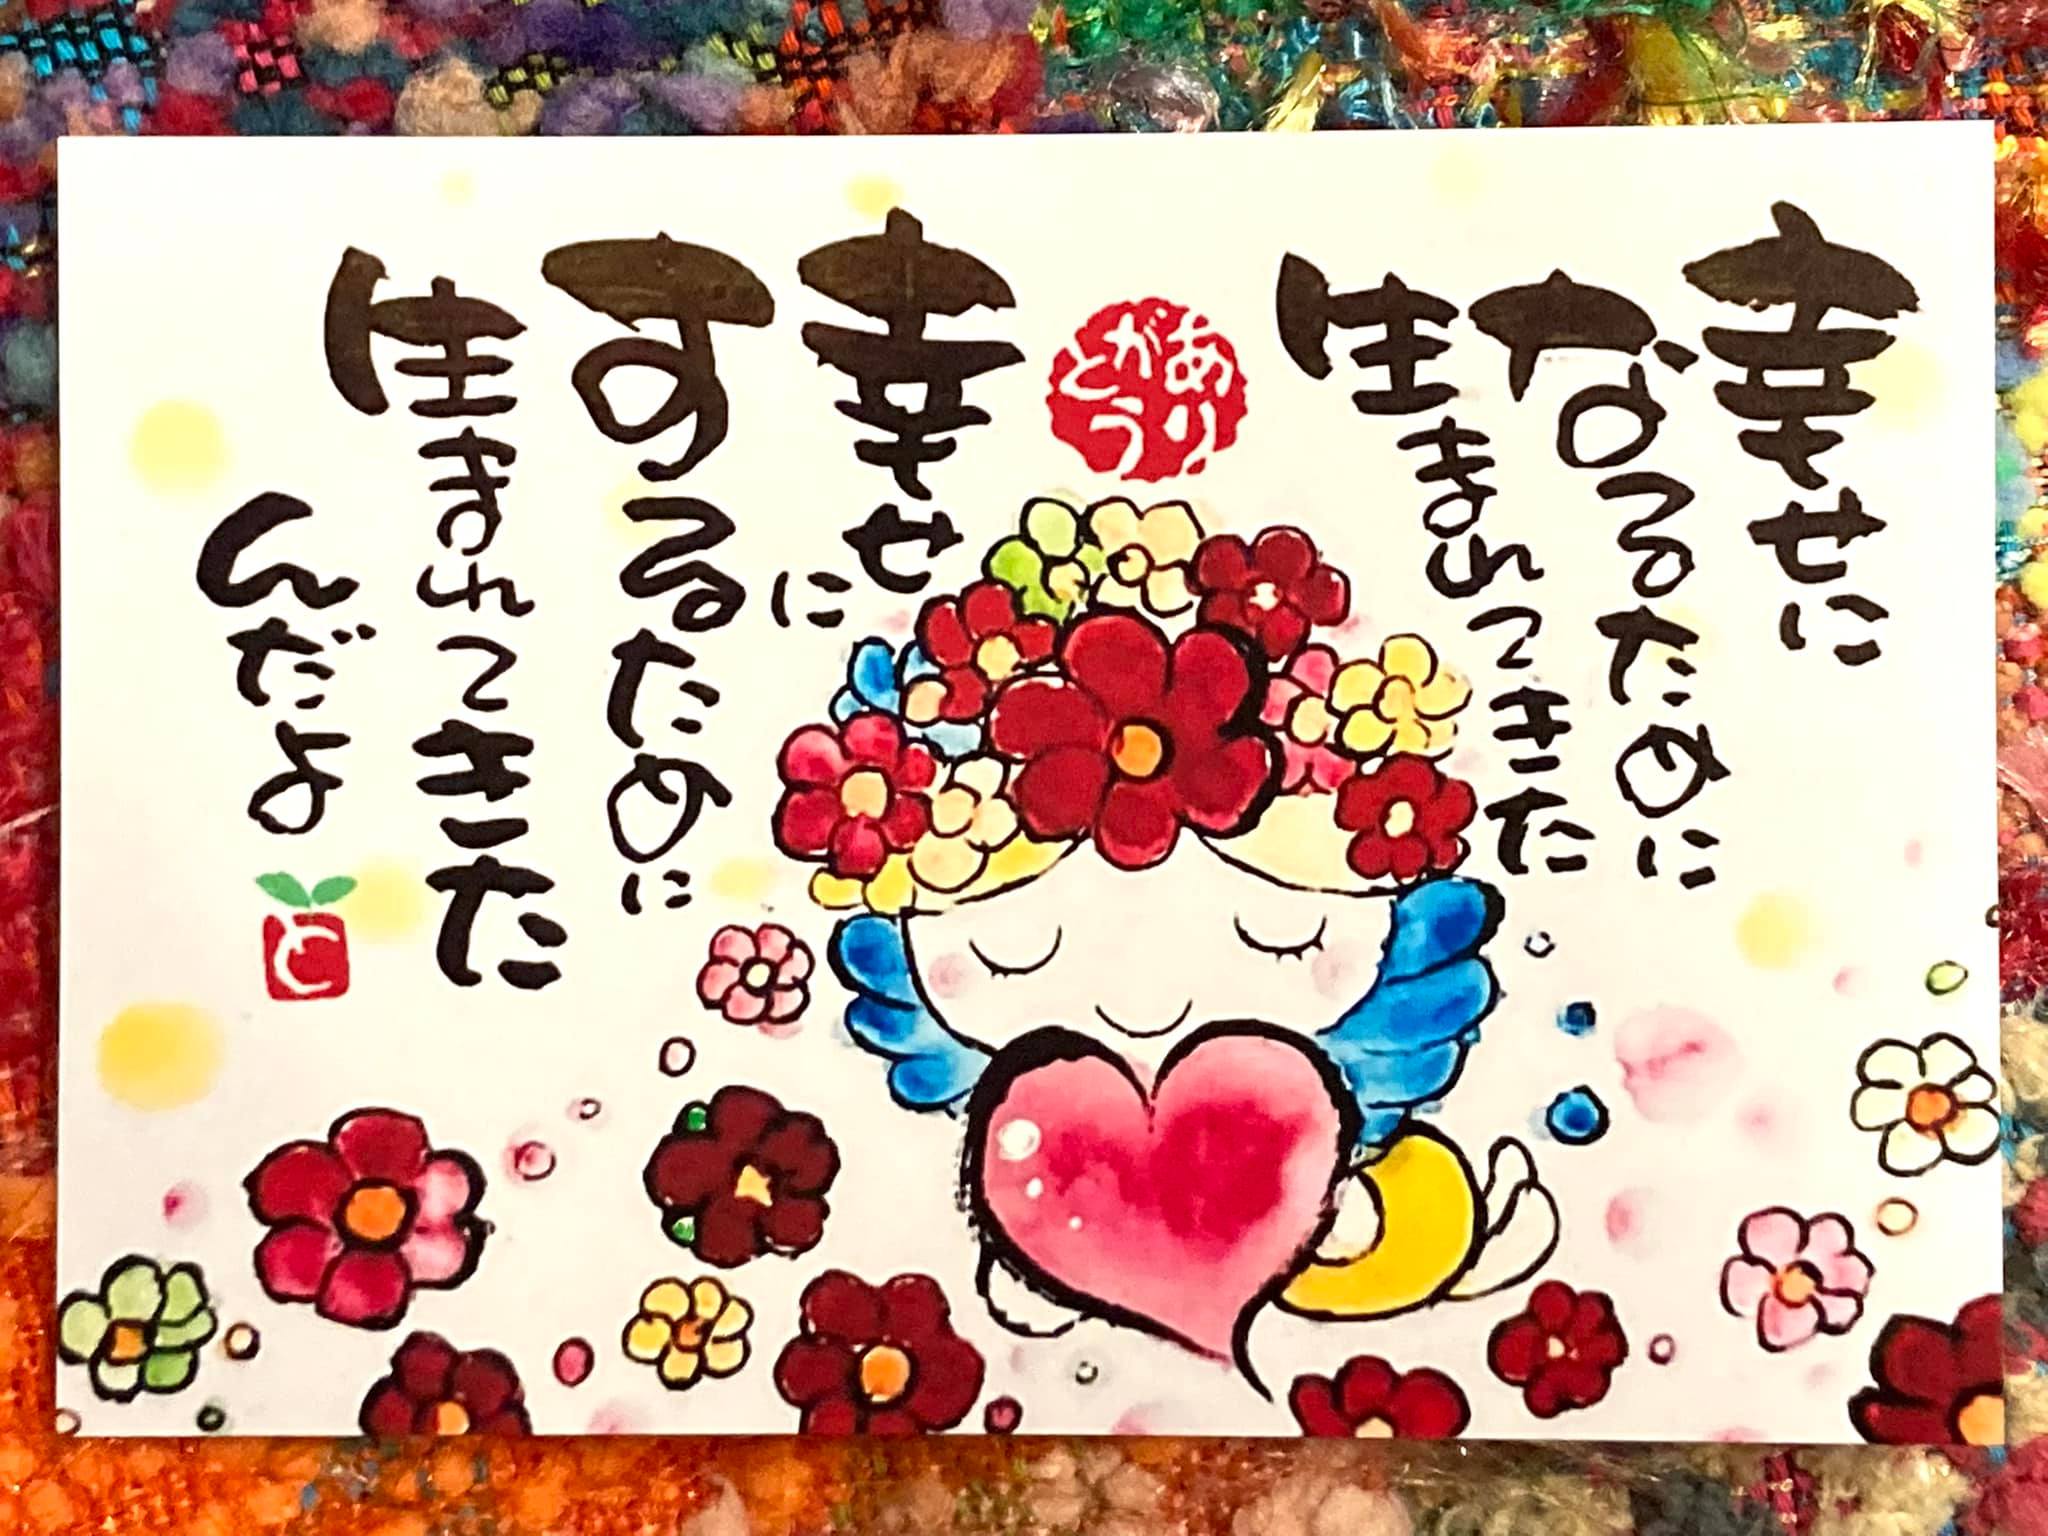 幸せに
なるために
生まれてきた
ありがとう
幸せに
するために
生まれてきた
んだよ
と